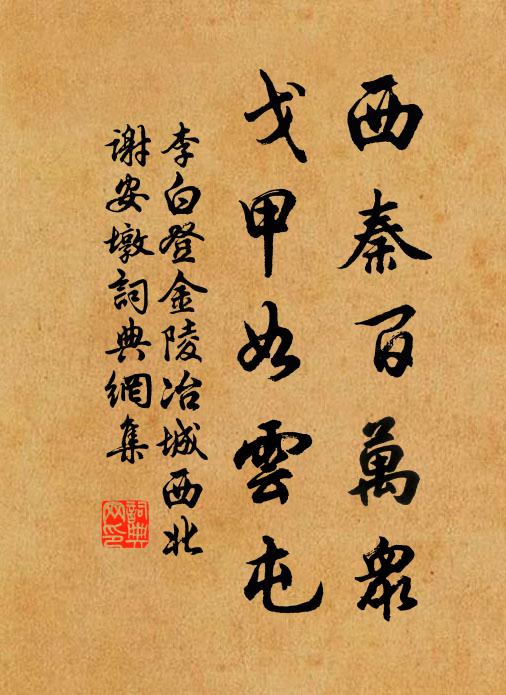 西秦百萬眾
戈甲如雲屯
李白登金陵冶城西北
謝安墩詞典網集
詞典網印